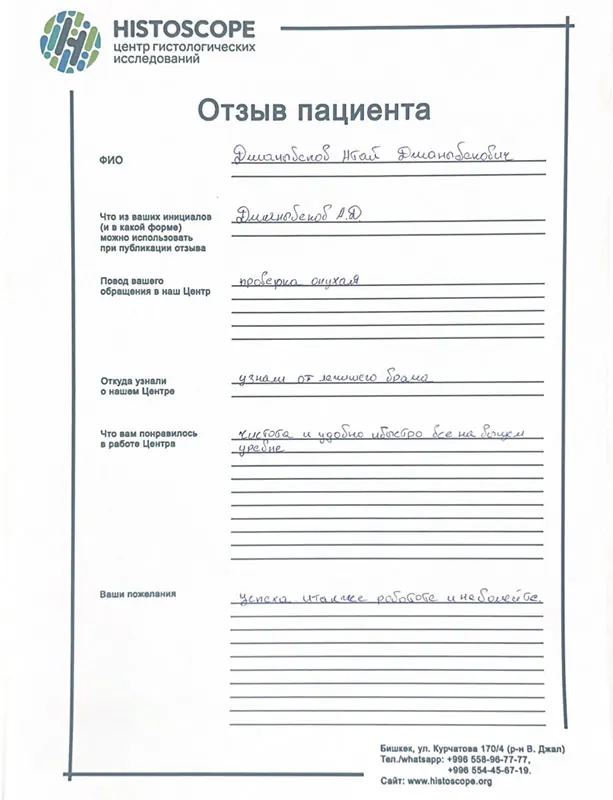 HISTOSCOPE
центр гистологических
исследований
Отзыв пациента
ФИО
Джаныбеков Атай Джаныбекович
Что из ваших инициалов
(и в какой форме)
можно использовать
при публикации отзыва
Джаныбеков А.Д
Повод вашего
обращения в наш Центр
проверка опухая
Откуда узнали
о нашем Центре
узнали от лечишего врача
Что вам понравилось
в работе Центра
чистота и удобно ибыстро все на вышем
уровне
Ваши пожелания
успеха и также работоте и не болейте.
Бишкек, ул. Курчатова 170/4 (р-н В. Джал)
Тел./whatsapp: +996 558-96-77-77,
+996 554-45-67-19.
Сайт: www.histoscope.org